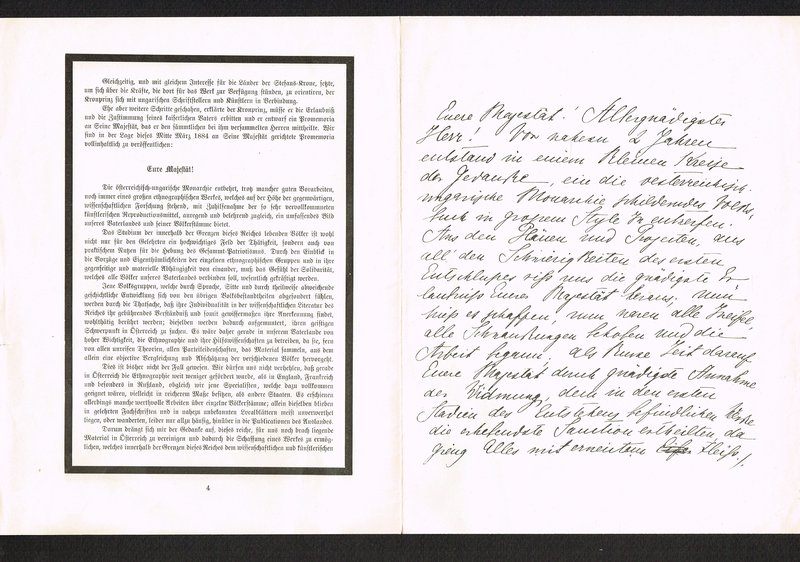 Gleichzeitig, und mit gleichem Interesse für die Länder der Stefans-Krone, setzte,
um sich über die Kräfte, die dort für das Werk zur Verfügung stünden, zu orientiren, der
Kronprinz sich mit ungarischen Schriftstellern und Künstlern in Verbindung.
Ehe aber weitere Schritte geschahen, erklärte der Kronprinz, müsse er die Erlaubniß
und die Zustimmung seines kaiserlichen Vaters erbitten und er entwarf ein Promemoria
an Seine Majestät, das er den sämmtlichen bei ihm versammelten Herren mittheilte. Wir
sind in der Lage dieses Mitte März 1884 an Seine Majestät gerichtete Promemoria
vollinhaltlich zu veröffentlichen:
Eure Majestät!
Die österreichisch-ungarische Monarchie entbehrt, trotz mancher guten Vorarbeiten,
noch immer eines großen ethnographischen Werkes, welches auf der Höhe der gegenwärtigen,
wissenschaftlichen Forschung stehend, mit Zuhilfenahme der so sehr vervollkommneten
künstlerischen Reproductionsmittel, anregend und belehrend zugleich, ein umfassendes Bild
unseres Vaterlandes und seiner Völkerstämme bietet.
Das Studium der innerhalb der Grenzen dieses Reiches lebenden Völker ist wohl
nicht nur für den Gelehrten ein hochwichtiges Feld der Thätigkeit, sondern auch von
praktischem Nutzen für die Hebung des Gesammt-Patriotismus. Durch den Einblick in
die Vorzüge und Eigenthümlichkeiten der einzelnen ethnographischen Gruppen und in ihre
gegenseitige und materielle Abhängigkeit von einander, muß das Gefühl der Solidarität,
welches alle Völker unseres Vaterlandes verbinden soll, wesentlich gekräftigt werden.
Jene Volksgruppen, welche durch Sprache, Sitte und durch theilweise abweichende
geschichtliche Entwicklung sich von den übrigen Volksbestandtheilen abgesondert fühlen,
werden durch die Thatsache, daß ihre Individualität in der wissenschaftlichen Literatur des
Reiches ihr gebührendes Verständniß und somit gewissermaßen ihre Anerkennung findet,
wohlthätig berührt werden; dieselben werden dadurch aufgemuntert, ihren geistigen
Schwerpunkt in Österreich zu suchen. Es wäre daher gerade in unserem Vaterlande von
hoher Wichtigkeit, die Ethnographie und ihre Hilfswissenschaften zu betreiben, da sie, fern
von allen unreifen Theorien, allen Parteileidenschaften, das Material sammeln, aus dem
allein eine objective Vergleichung und Abschätzung der verschiedenen Völker hervorgeht.
Dies ist bisher nicht der Fall gewesen. Wir dürfen uns nicht verhehlen, daß gerade
in Österreich die Ethnographie weit weniger gefördert wurde, als in England, Frankreich
und besonders in Rußland, obgleich wir jene Specialisten, welche dazu vollkommen
geeignet wären, vielleicht in reicherem Maße besitzen, als andere Staaten. Es erschienen
allerdings manch werthvolle Arbeiten über einzelne Völkerstämme; allein dieselben blieben
in gelehrten Fachschriften und in nahezu unbekannten Localblättern meist unverwerthet
liegen, oder wanderten, leider nur allzu häufig, hinüber in die Publicationen des Auslandes.
Darum drängt sich mir der Gedanke auf, dieses reiche, für uns noch brach liegende
Material in Österreich zu vereinigen und dadurch die Schaffung eines Werkes zu ermög-
lichen, welches innerhalb der Grenzen dieses Reiches dem wissenschaftlichen und künstlerischen
4
Euere Majestät! Allergnädigster
Herr! Vor nahezu 2 Jahren
entstand in einem kleinen Kreise
der Gedanke, ein die oesterreichisch-
ungarische Monarchie schilderndes Volks-
buch in grossem Style zu entwerfen.
Aus den Plänen und Projecten, aus
all' den Schwierigkeiten des ersten
Entschlusses riss uns die gnädigste Er-
laubniss Eurer Majestät heraus; nun
hiess es schaffen, nun waren alle Zweifel,
alle Schwankungen behoben und die
Arbeit begann; als kurze Zeit darauf
Euere Majestät durch gnädigste Annahme
der Widmung, dem in den ersten
Stadien des Entstehens befindlichen Werke
die erhebendste Sanction ertheilten, da
gieng Alles mit erneutem Fleiss